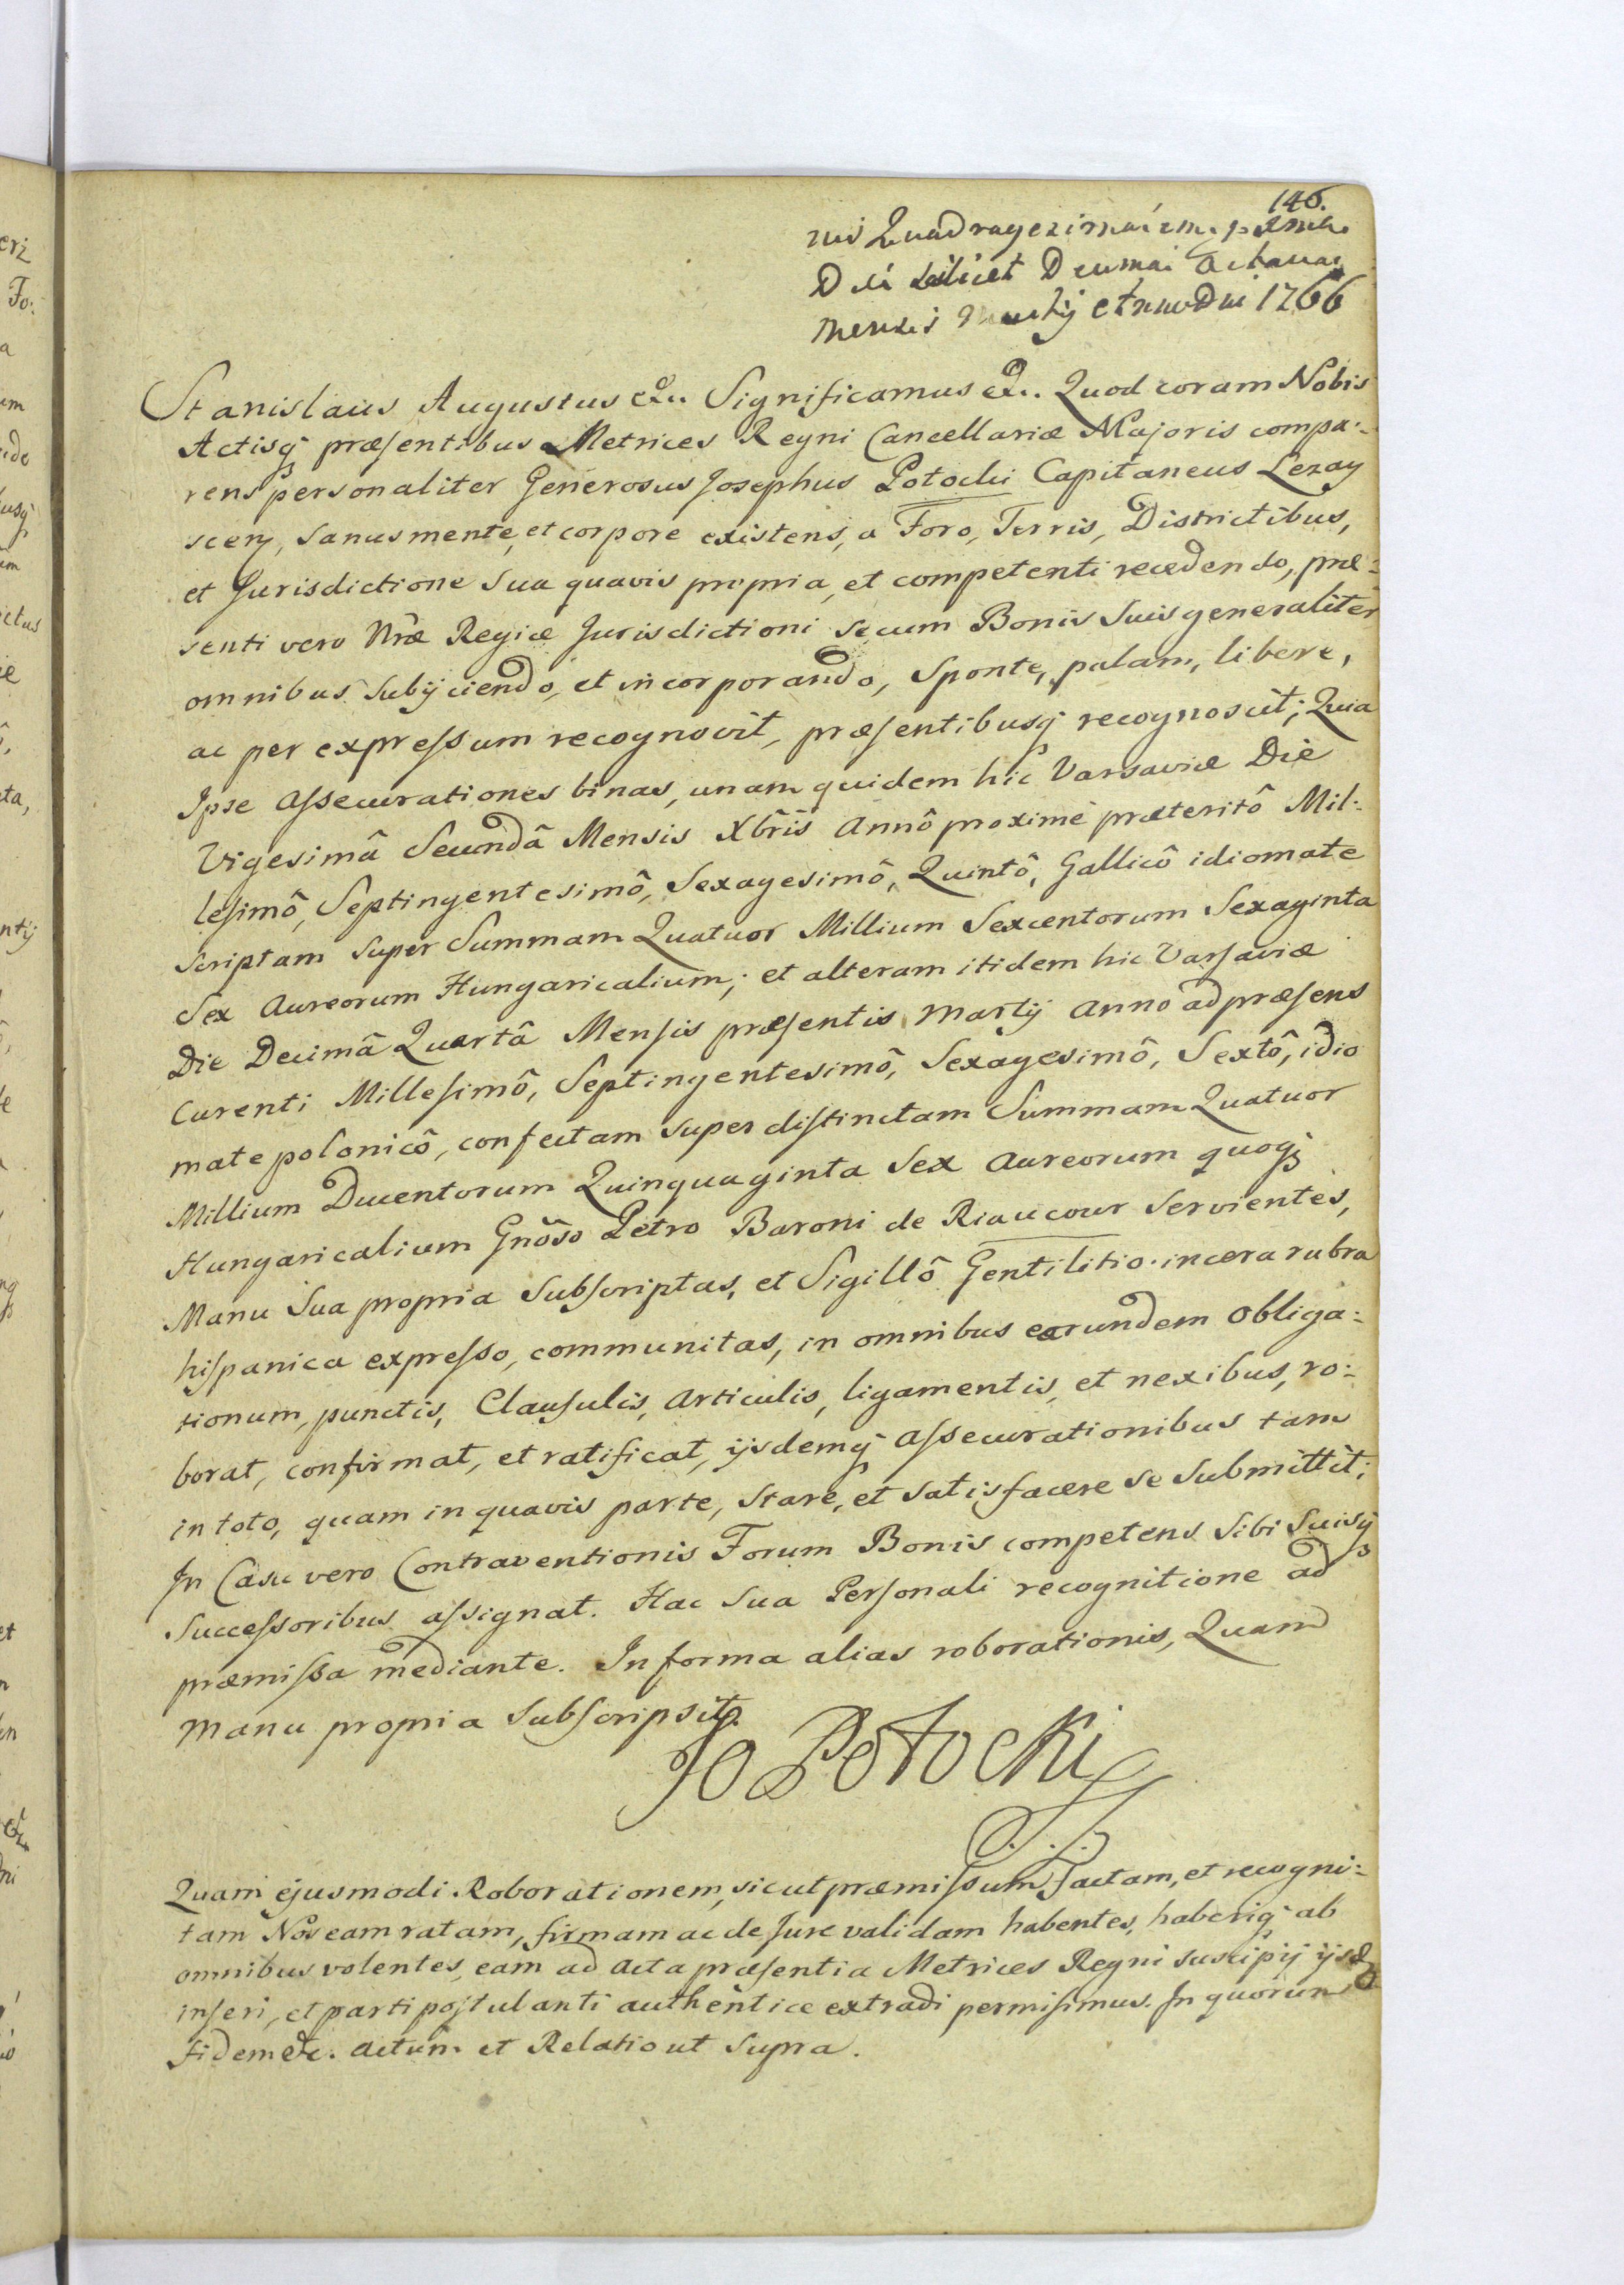 146.
nis Quadragezimai
Dei Scilicet Decimai Octavai
Mensis Martij Anno Dni 1766
Stanislaus Augustus &c. Significamus &c. Quod coram Nobis
Actisq præsentibus Metrices Regni Cancellariæ Majoris compa:
rens personaliter Generosus Josephus Potocki Capitaneus Lezay
scen, sanus mente, et corpore existens, a Foro, Terris, Districtibus,
et Jurisdictione sua quavis propria, et competenti recedendo, præ:
senti vero Nræ Regiæ Jurisdictioni secum Bonis suis generaliter
omnibus subijciendo, et incorporando, sponte, palam, libere,
ac per expressum recognovit, præsentibusq recognoscit; Quia
Ipse Assecurationes binas, unam quidem hic Varsaviæ Die
Vigesimâ Secundâ Mensis Xbris Annô proxime præteritô Mil:
lesimô, Septingentesimô, Sexagesimô, Quintô, Gallicô idiomate
scriptam super Summam Quatuor Millium Sexcentorum Sexaginta
Sex Aureorum Hungaricalium; et alteram itidem hic Varsaviæ
Die Decimâ Quartâ Mensis præsentis Martij Anno ad præsens
Curenti Millesimô, Septingentesimô, Sexagesimô, Sextô, idio
mate polonicô, confectam super distinctam Summam Quatuor
Millium Ducentorum Quinquaginta Sex Aureorum quoq
Hungaricalium Gnôso Petro Baroni de Riaucour servientes,
Manu Sua propria Subscriptas, et Sigillô Gentilitio in cera rubra
hispanica expresso, communitas, in omnibus earundem obliga:
tionum, punctis, Clausulis, Articulis, ligamentis, et nexibus, ro:
borat, confirmat, et ratificat, ijsdemq Assecurationibus tam
in toto, quam in quavis parte, stare, et satisfacere se submittit;
In Casu vero Contraventionis Forum Bonis competens Sibi Suisq
Successoribus assignat. Hac Sua Personali recognitione ad
præmissa mediante. In forma alias roborationis, Quam
manu propria Subscripsit.
Jo Potocki
Quam ejusmodi Roborationem, sicut præmissum factam, et recogni:
tam Nos eam ratam, firmam ac de Jure validam habentes, haberiq ab
omnibus volentes, eam ad Acta præsentia Metrices Regni suscipij ijsdē
inseri, et parti postulanti authentice extradi permisimus. In quorum
Fidem &c. Actum et Relatio ut Supra.